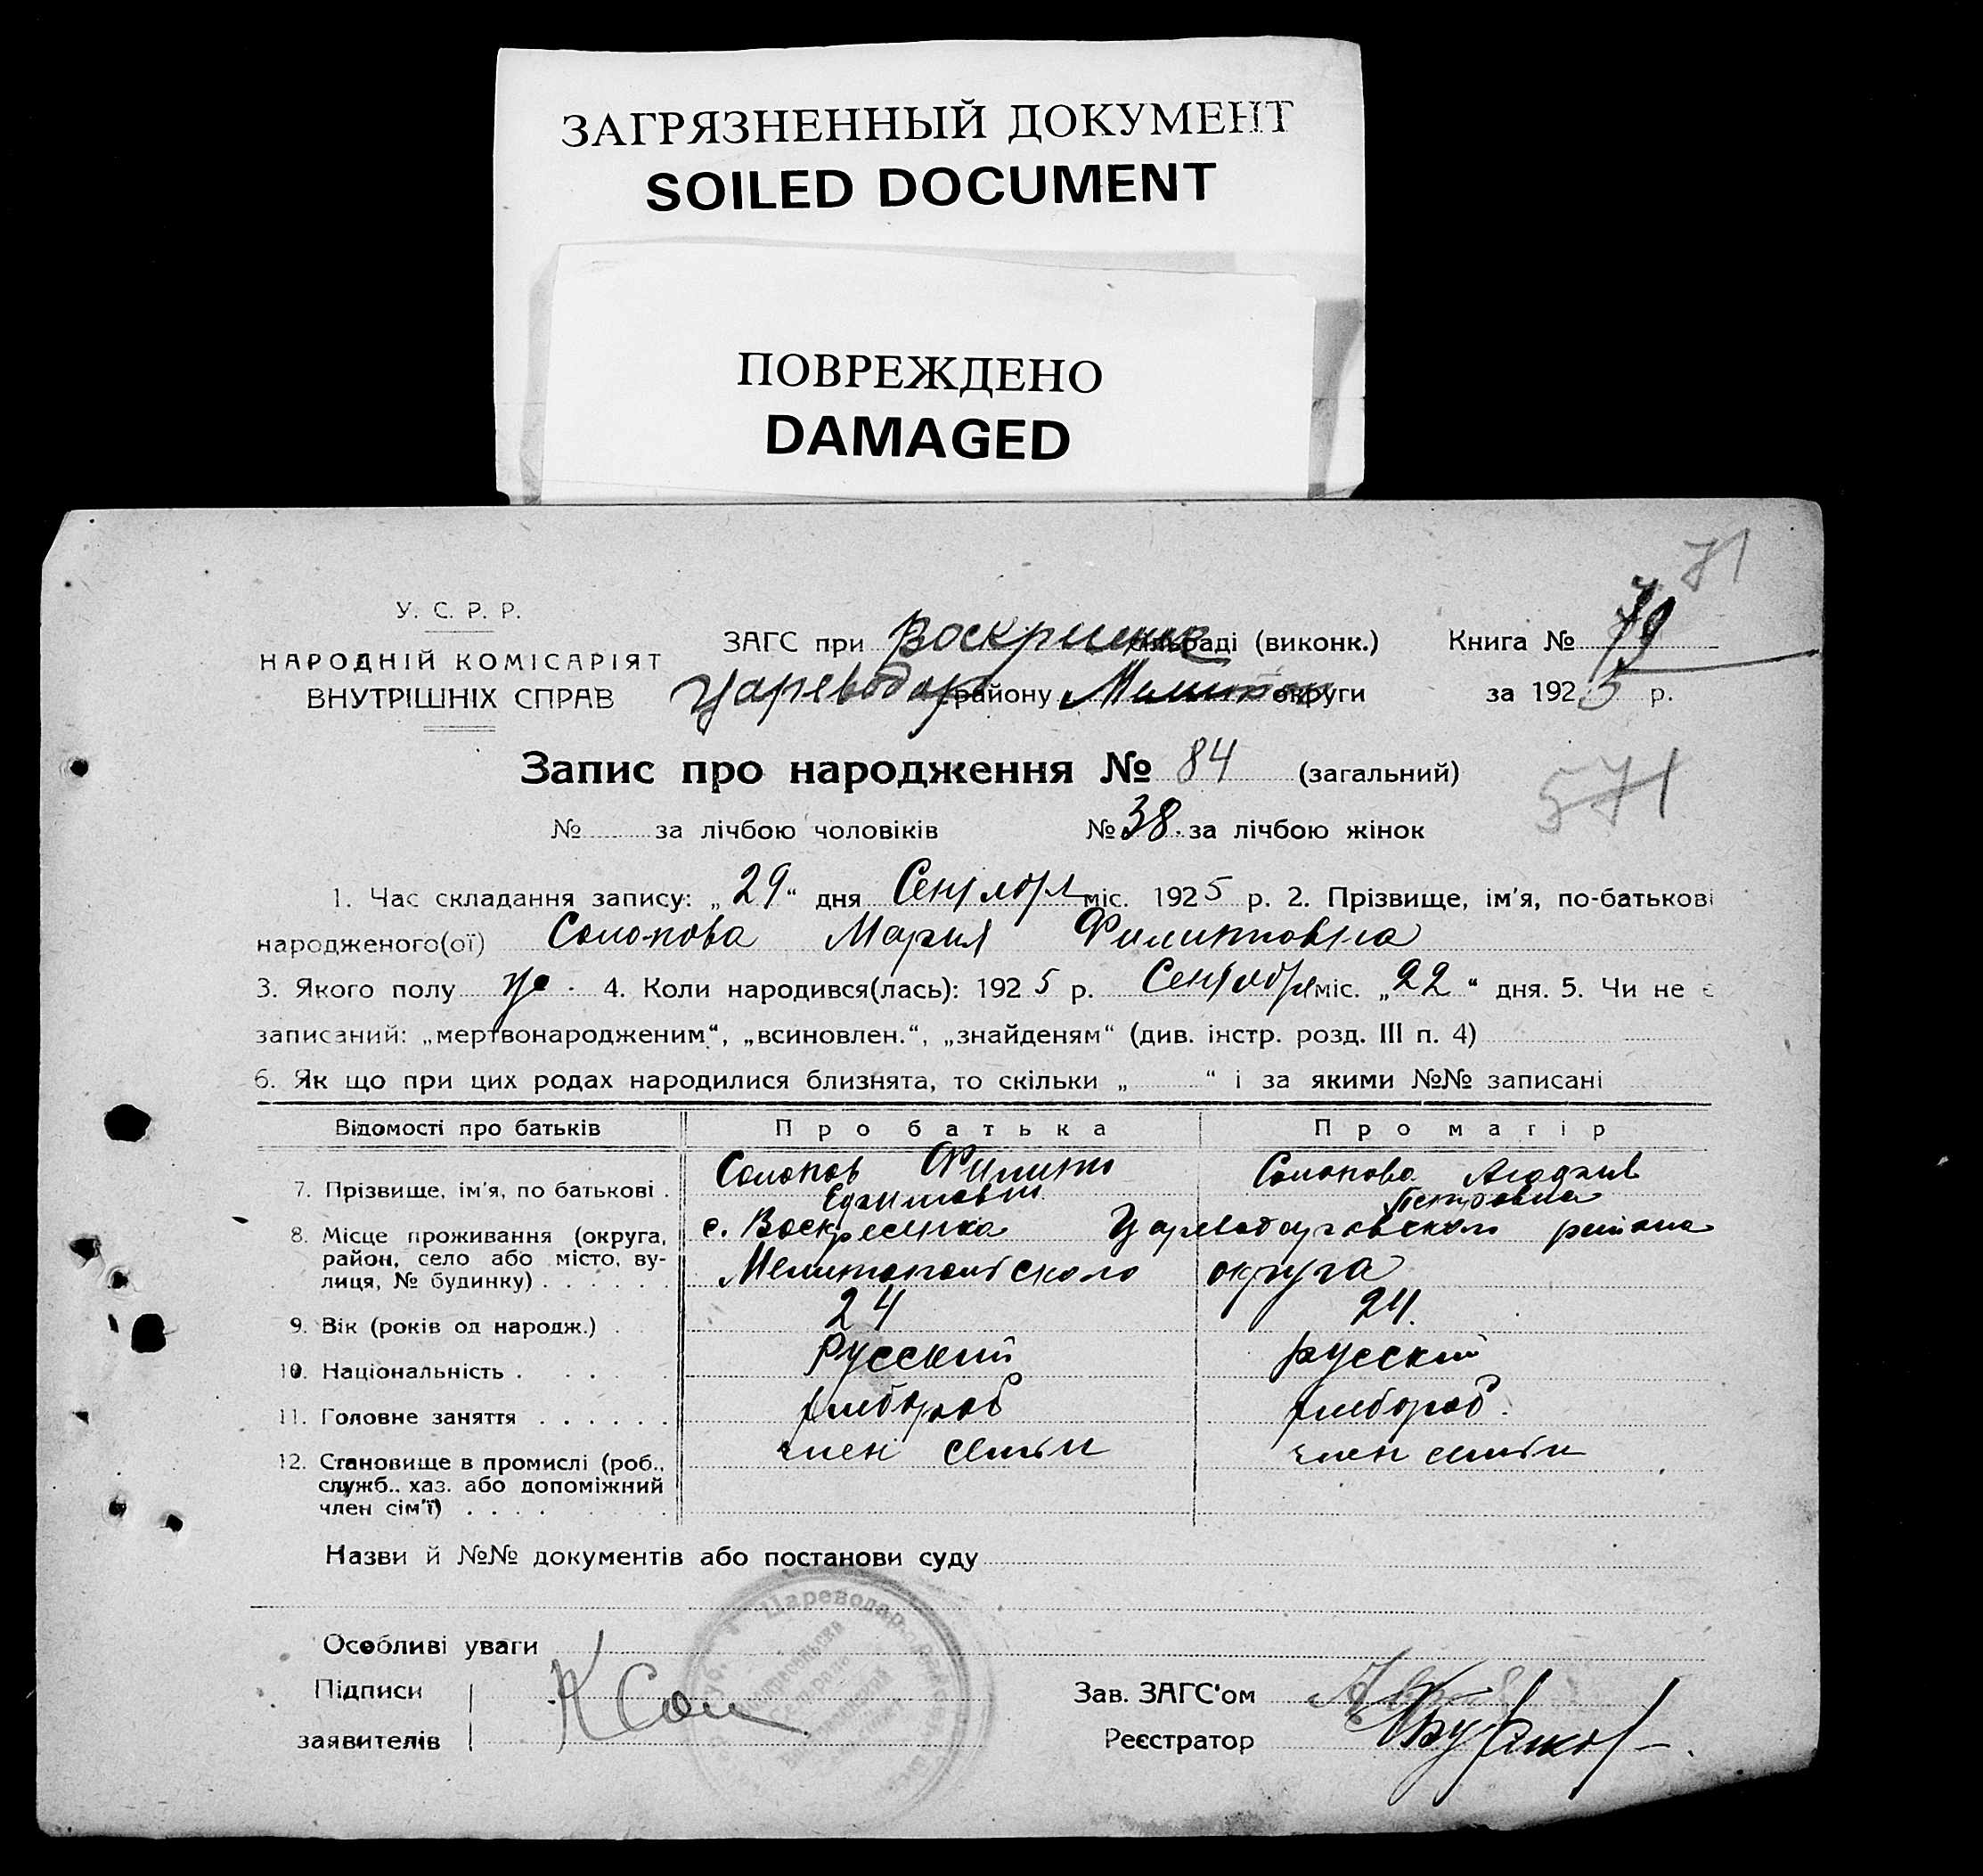 ЗАГРЯЗНЕННЫЙ ДОКУМЕНТ
SOILED DOCUMENT
ПОВРЕЖДЕНО
DAMAGED
71
У. С. Р. Р.
НАРОДНІЙ КОМІСАРІЯТ
ВНУТРІШНІХ СПРАВ
ЗАГС при Воскрисенс сільраді (виконк.) Книга № 79
Цареводар району Мелитоп округи за 1925 р.
Запис про народження № 84 (загальний)
571
№ за лічбою чоловіків № 38. за лічбою жінок
1. Час складання запису: „29“ дня Сентября міс. 1925 р. 2. Прізвище, ім'я, по-батькові
народженого(ої) Солопова Мария Филипповна
3. Якого полу жс. 4. Коли народився(лась): 1925 р. Сентября міс. „22“ дня. 5. Чи не є
записаний: „мертвонародженим“, „всиновлен.“, „знайденям“ (див. інстр. розд. III п. 4)
6. Як що при цих родах народилися близнята, то скільки „ “ і за якими №№ записані
Відомості про батьків Про батька Про матір
7. Прізвище, ім'я, по батькові . Солопов Филипп Солопова
Петровна
8. Місце проживання (округа, с. Воскресенка Цареводаровского района
район, село або місто, ву-
лиця, № будинку) . . . . . Мелитопольского округа
9. Вік (років од народж.) . 24 24.
10. Національність . . . . Русский русский
11. Головне заняття . . . . . . хлебороб хлебороб.
12. Становище в промислі (роб., член семьи член семьи
служб., хаз. або допоміжний
член сім'ї) . . . . . . .
Назви й №№ документів або постанови суду
Цареводар
Особливі уваги
Підписи
Зав. ЗАГС'ом
заявителів
Реєстратор